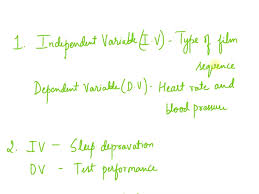 1. Independent Variable (I.V) - Type of film
sequence
Dependent Variable (D.V) - Heart rate and
blood pressure
2. IV - Sleep depravation
DV - Test performance